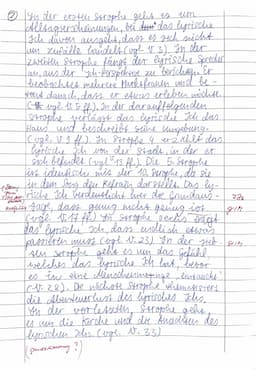 ② In der ersten Strophe geht es um
Alltagserscheinungen, bei das lyrische
Ich davon ausgeht, dass es sich nicht
um zufälle handelt (vgl. V. 3). In der
zweiten Strophe fängt der lyrische Sprecher
an, aus der Ich-Perspektive zu berichten, er
beobachtet mehrere und
dass er etwas erleben möchte.
(vgl. V. 5 ff). In der darauffolgenden
Strophe verlässt das lyrische Ich das
Haus und beschreibt seine umgebung
(vgl. V. 9 ff). In Strophe 4 erzählt das
lyrische Ich von der Stadt, in der er
sich befindet (vgl. 13 ff). Die 5. Strophe
ist identisch mit der 10. Strophe, da sie
in dem Song den Refrain darstellt. Das ly-
rische Ich verdeutlicht hier die
dass genug nicht genug ist
(vgl. V. 17 ff). In Strophe sechs
das lyrische Ich, dass endlich etwas
passieren muss (vgl. V. 23). In der sieb-
ten Strophe geht es um das Gefühl
welches das lyrische Ich hat, bevor
es in eine Menschenmenge
(V. 28). Die nächste Strophe thematisiert
die Abenteuerlust des lyrischen Ichs.
In der vorletzten Strophe geht
es um die Kirche und die des
lyrischen Ichs (vgl. V. 33)